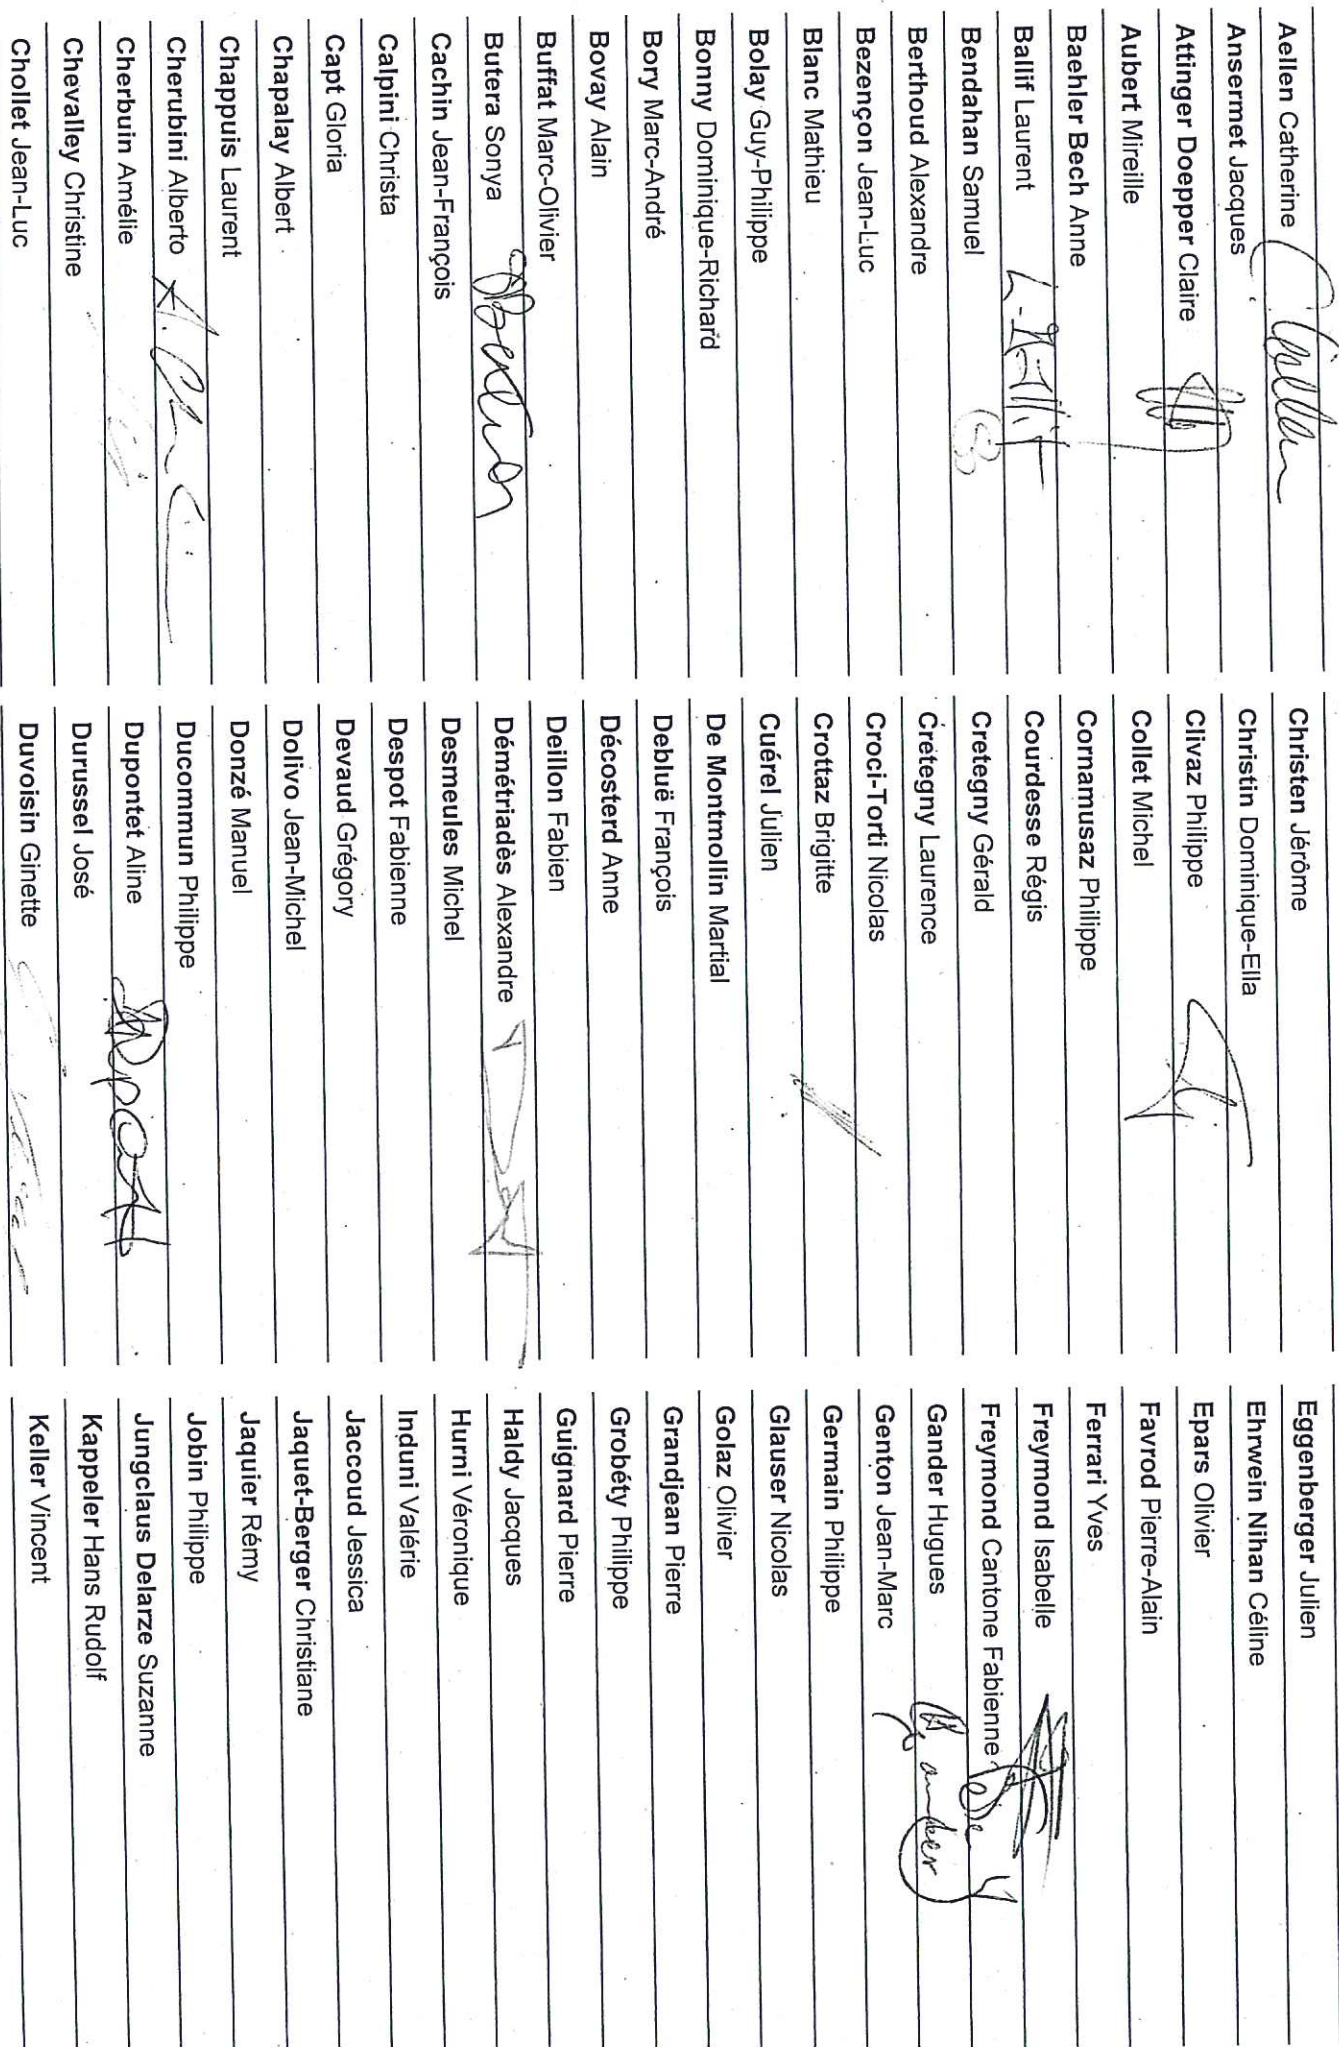 Aellen Catherine C. Aellen
Ansermet Jacques
Attinger Doepper Claire
Aubert Mireille
Baehler Bech Anne
Ballif Laurent L. Ballif
Bendahan Samuel
Berthoud Alexandre
Bezençon Jean-Luc
Blanc Mathieu
Bolay Guy-Philippe
Bonny Dominique-Richard
Bory Marc-André
Bovay Alain
Buffat Marc-Olivier
Butera Sonya SButera
Cachin Jean-François
Calpini Christa
Capt Gloria
Chapalay Albert
Chappuis Laurent
Cherubini Alberto
Cherbuin Amélie
Chevalley Christine
Chollet Jean-Luc
Christen Jérôme
Christin Dominique-Ella
Clivaz Philippe
Collet Michel
Cornamusaz Philippe
Courdesse Régis
Cretegny Gérald
Cretegny Laurence
Croci-Torti Nicolas
Crottaz Brigitte
Cuérel Julien
De Montmollin Martial
Debluë François
Décosterd Anne
Deillon Fabien
Démétriadès Alexandre
Desmeules Michel
Despot Fabienne
Devaud Grégory
Dolivo Jean-Michel
Donzé Manuel
Ducommun Philippe
Dupontet Aline
Durussel José
Duvoisin Ginette
Eggenberger Julien
Ehrwein Nihan Céline
Epars Olivier
Favrod Pierre-Alain
Ferrari Yves
Freymond Isabelle
Freymond Cantone Fabienne
Gander Hugues Gander
Genton Jean-Marc
Germain Philippe
Glauser Nicolas
Golaz Olivier
Grandjean Pierre
Grobéty Philippe
Guignard Pierre
Haldy Jacques
Hurni Véronique
Induni Valérie
Jaccoud Jessica
Jaquet-Berger Christiane
Jaquier Rémy
Jobin Philippe
Jungclaus Delarze Suzanne
Kappeler Hans Rudolf
Keller Vincent